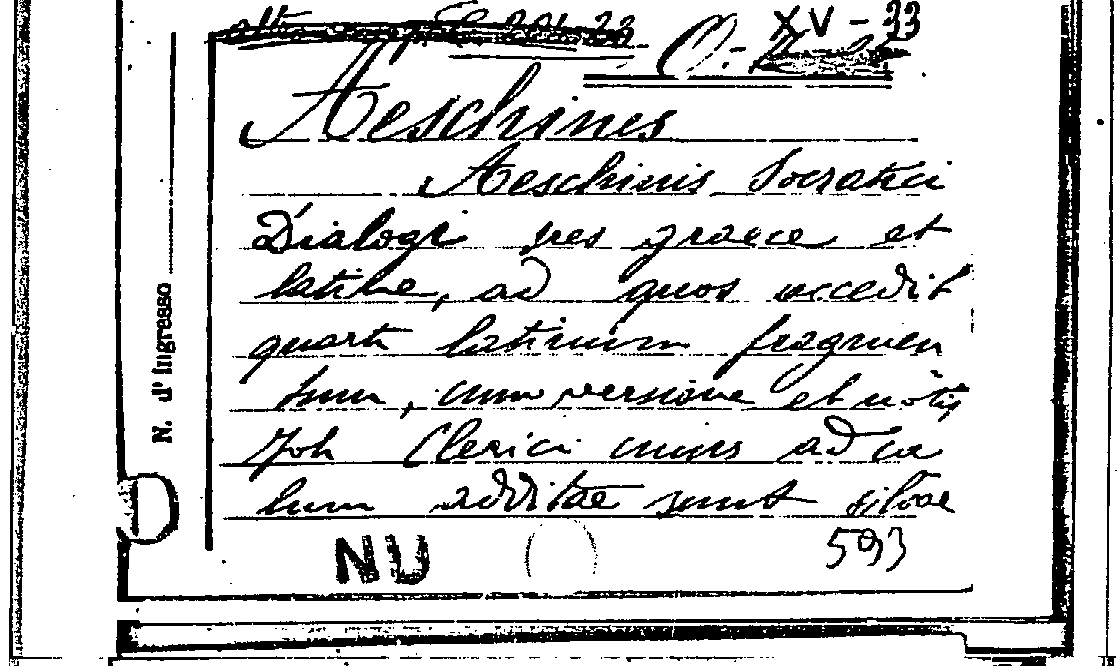 XV - 33
Aeschines
Aeschinis Socratici
Dialogi tres graece et
latine, ad quos accedit
quarti latinum fragmen
tum, cum versione et notis
Joh Clerici cuius ad ca
lum additae sunt silvae
N. d'Ingresso
NU
593